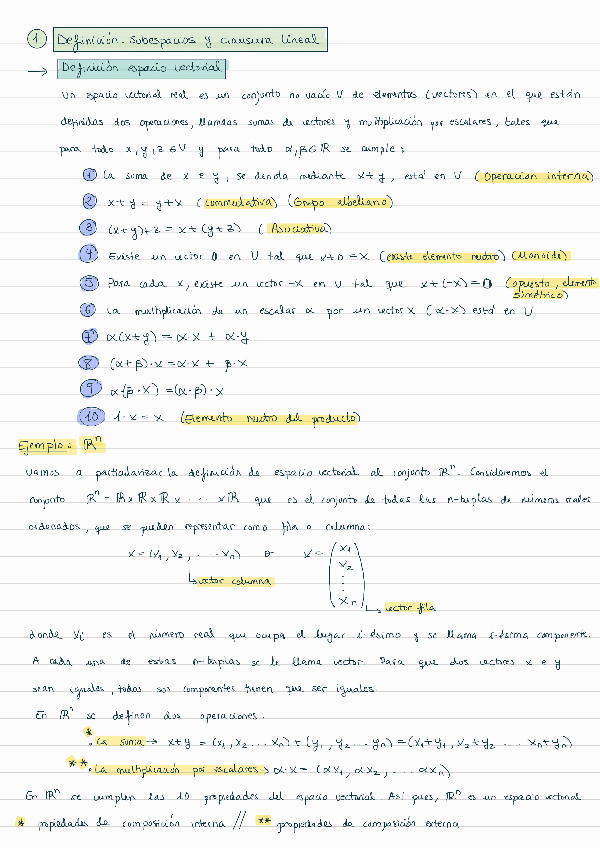 1 Definición. Subespacios y clausura lineal
→ Definición espacio vectorial
Un espacio vectorial real es un conjunto no vacío V de elementos (vectores) en el que están
definidas dos operaciones, llamdas sumas de vectores y multiplicación por escalares, tales que
para todo x, y, z ∈ V y para todo α, β ∈ ℝ se cumple:
1 La suma de x e y, se denota mediante x+y, está en V (Operación interna)
2 x+y = y+x (conmutativa) (Grupo albeliano)
3 (x+y)+z = x+(y+z) (Asociativa)
4 Existe un vector 0 en V tal que x+0=x (existe elemento neutro) (Monoide)
5 Para cada x, existe un vector -x en V tal que x+(-x)=0 (opuesto, elemento
simétrico)
6 La multiplicación de un escalar α por un vector x (α·x) está en V
7 α(x+y) = α·x + α·y
8 (α+β)·x = α·x + β·x
9 α(β·x) = (α·β)·x
10 1·x = x (Elemento neutro del producto)
Ejemplo: ℝⁿ
Vamos a particularizar la definición de espacio vectorial al conjunto ℝⁿ. Consideremos el
conjunto ℝⁿ = ℝ x ℝ x ℝ x ... x ℝ que es el conjunto de todas las n-tuplas de números reales
ordenados, que se pueden representar como fila o columna:
x = (x₁, x₂, ... xₙ) o x = (x₁
x₂
⋮
xₙ)
↳ vector columna
↳ vector fila
donde xᵢ es el número real que ocupa el lugar i-ésimo y se llama i-ésima componente.
A cada una de estas n-tuplas se le llama vector. Para que dos vectores x e y
sean iguales, todas sus componentes tienen que ser iguales.
En ℝⁿ se definen dos operaciones:
* · La suma → x+y = (x₁, x₂ ... xₙ) + (y₁, y₂ ... yₙ) = (x₁+y₁, x₂+y₂ ... xₙ+yₙ)
** · La multiplicación por escalares → α·x = (αx₁, αx₂, ... αxₙ)
En ℝⁿ se cumplen las 10 propiedades del espacio vectorial. Así pues, ℝⁿ es un espacio vectorial
* propiedades de composición interna // ** propiedades de composición externa